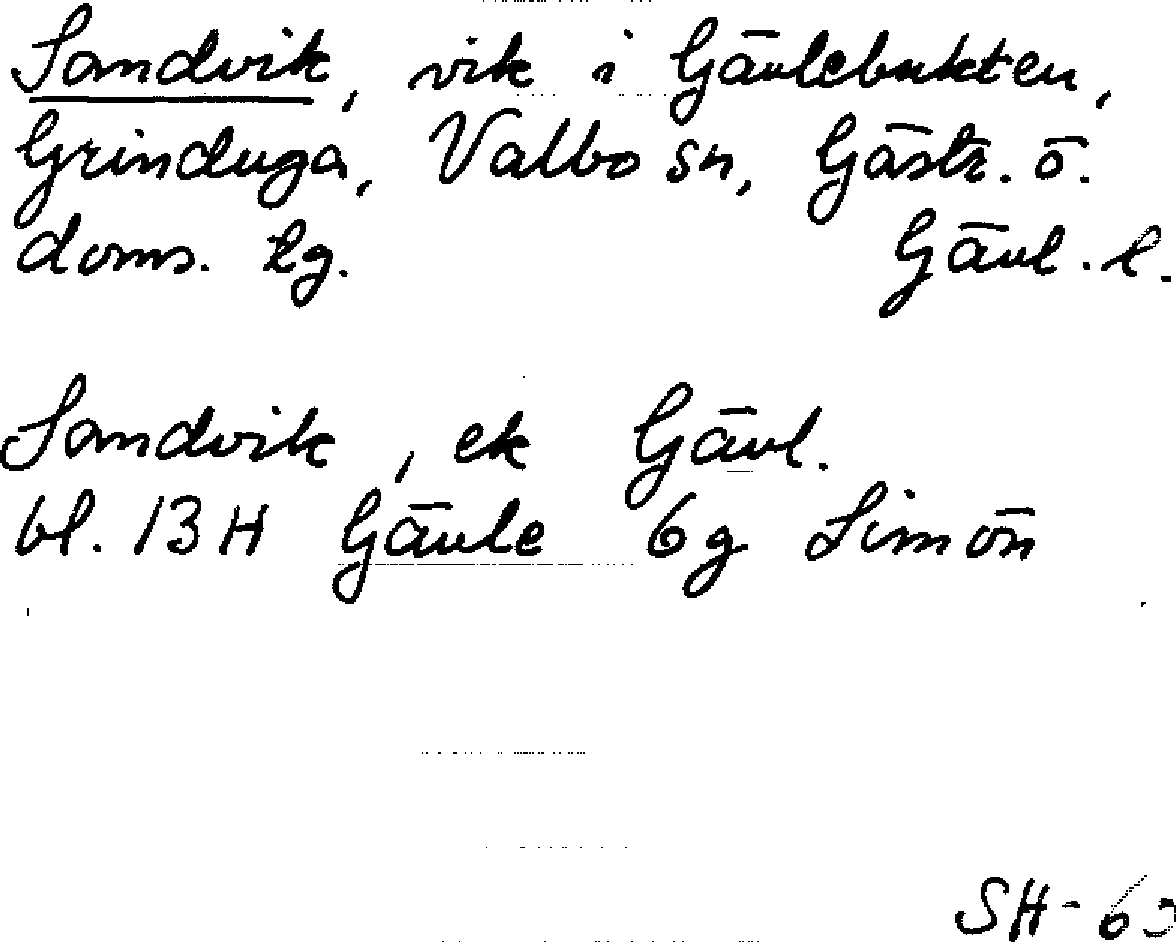 Sandvik, vik i Gävlebukten,
Grinduga, Valbo sn, Gästr. ö.
doms. tg. Gävl. l.
Sandvik, ek Gävl.
bl. 13H Gävle 6g Limön
SH-63